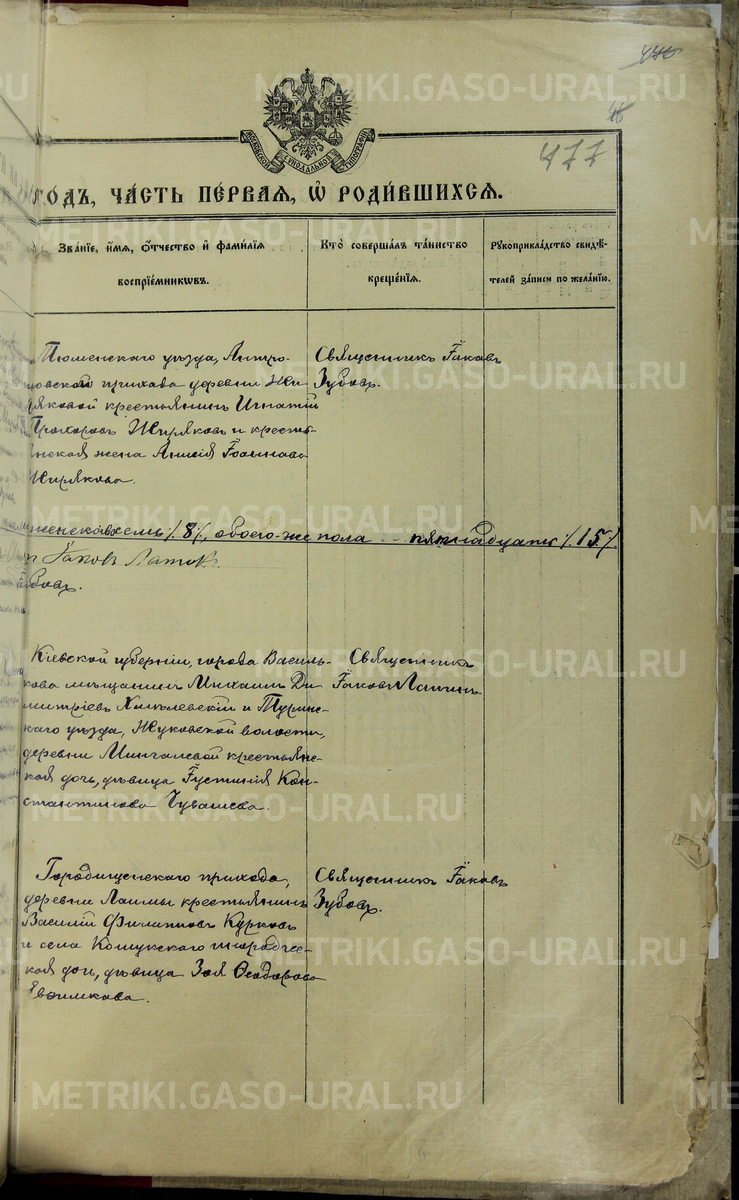 476
477
МОСКОВСКОЙ СѴНОДАЛЬНОЙ ТИПОГРАФІИ
ГОДЪ, ЧА́СТЬ ПЕ́РВАЯ, Ѡ҆ РОДИ́ВШИХСЯ.
Зва́ніе, и҆́мя, ѻ҆́тчество и҆ фами́лія
воспріе́мникѡвъ.
Кто̀ соверша́лъ та́инство
креще́нія.
Рꙋкоприкла́дство свидѣ́-
телей за́писи по жела́нію.
Тюменскаго уѣзда, Антро-
повской прихода деревни Жи-
ряковой крестьянинъ Игнатій
Прохоровъ Жиряковъ и кресть-
янская жена Анисія Іоаннова
Жирякова.
Священникъ Іаковъ
Зубовъ.
женска восемь /8/, обоего-же пола пятнадцать /15/.
Іаковъ
Кіевской губерніи, города Василь-
кова мѣщанинъ Михаилъ Ди-
митріевъ и Турин-
скаго уѣзда, Жуковской волости,
деревни Мингалевой крестьянс-
кая дочь, дѣвица Іустинія Кон-
стантинова Чувашева.
Священникъ
Іаковъ Лапинъ
Городищенскаго прихода,
деревни Лаимы крестьянинъ
Василій Филипповъ Курковъ
и села Кошукскаго инородчес-
кая дочь, дѣвица Зоя Ѳеодорова
Евфимкова.
Священникъ Іаковъ
Зубовъ.
METRIKI.GASO-URAL.RU